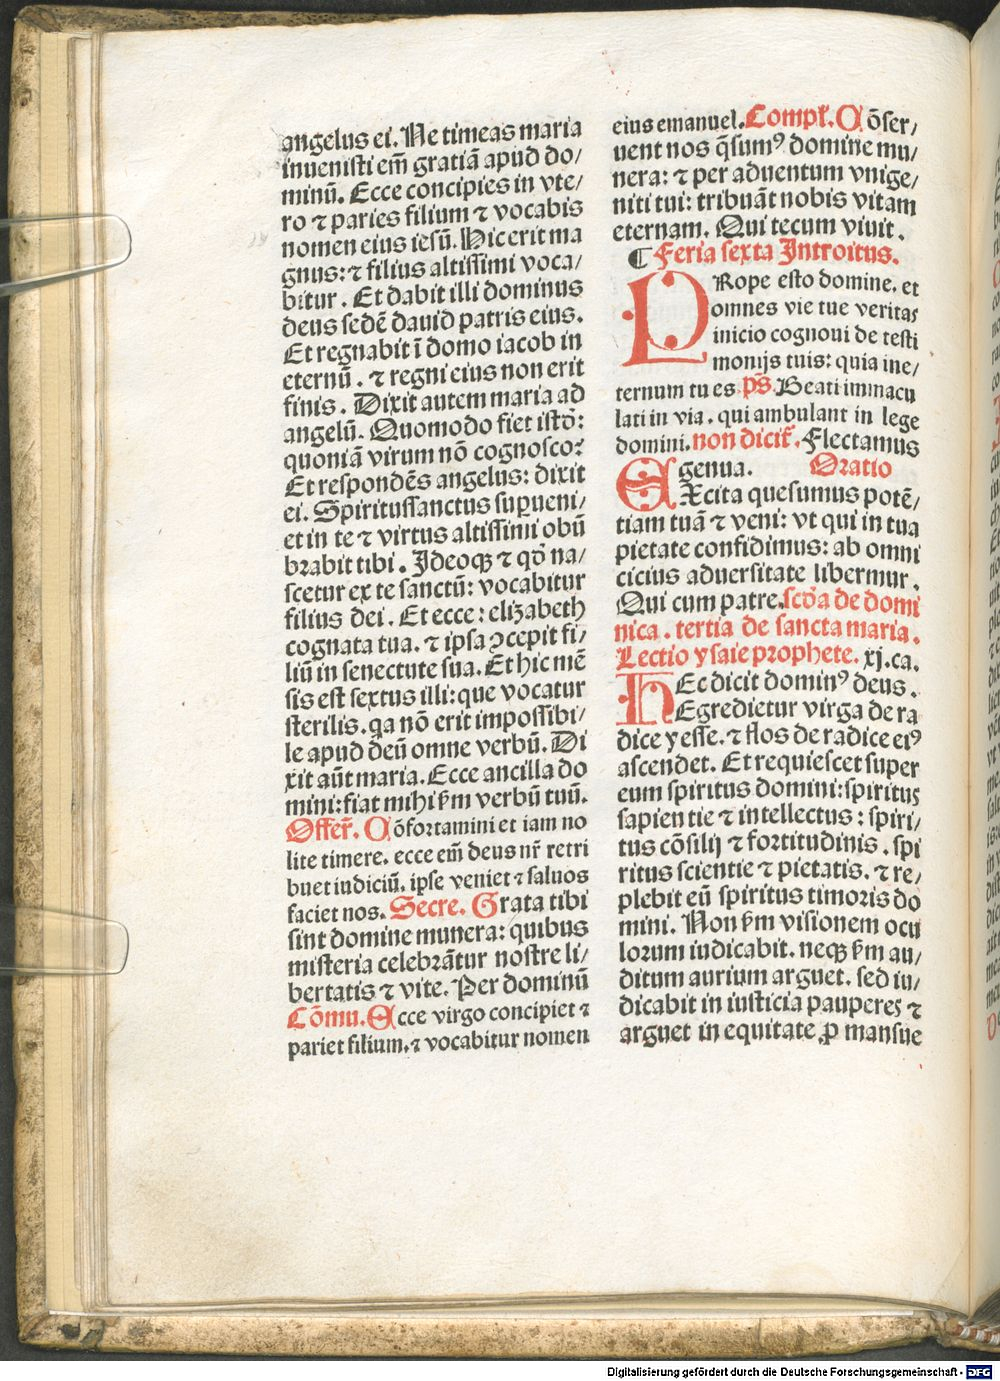 angelus ei. Ne timeas maria
inuenisti em̄ gratiā apud do/
minū. Ecce concipies in vte/
ro ⁊ paries filium ⁊ vocabis
nomen eius iesū. Hic erit ma
gnus: ⁊ filius altissimi voca/
bitur. Et dabit illi dominus
deus sedē dauid patris eius.
Et regnabit ī domo iacob in
eternū. ⁊ regni eius non erit
finis. Dixit autem maria ad
angelū. Quomodo fiet istō:
quoniā virum nō cognosco?
Et respondēs angelus: dixit
ei. Spiritussanctus suꝑueni/
et in te ⁊ virtus altissimi obū
brabit tibi. Ideoqꝫ ⁊ qō na/
scetur ex te sanctū: vocabitur
filius dei. Et ecce: elizabeth
cognata tua. ⁊ ipsa ꝯcepit fi/
liū in senectute sua. Et hic mē
sis est sextus illi: que vocatur
sterilis. qa nō erit impossibi/
le apud deū omne verbū. Di
xit aūt maria. Ecce ancilla do
mini: fiat mihi ẜm verbū tuū.
Offer̄. Cōfortamini et iam no
lite timere. ecce em̄ deus nr̄ retri
buet iudiciū. ipse veniet ⁊ saluos
faciet nos. Secre. Grata tibi
sint domine munera: quibus
misteria celebrātur nostre li/
bertatis ⁊ vite. Per dominū
Cōmu. Ecce virgo concipiet ⁊
pariet filium. ⁊ vocabitur nomen
eius emanuel. Compl̄. Cōser/
uent nos q̄sumꝰ domine mu/
nera: ⁊ per aduentum vnige/
niti tui: tribuāt nobis vitam
eternam. Qui tecum viuit.
¶ Feria sexta Introitus.
PRope esto domine. et
omnes vie tue veritas
inicio cognoui de testi
monijs tuis: quia ine/
ternum tu es. pš. Beati immacu
lati in via. qui ambulant in lege
domini. non dicit̄. Flectamus
genua. Oratio
EXcita quesumus potē/
tiam tuā ⁊ veni: vt qui in tua
pietate confidimus: ab omni
cicius aduersitate libermur.
Qui cum patre. scōa de domi
nica. tertia de sancta maria.
Lectio ysaie prophete. xj. ca.
HEc dicit dominꝰ deus.
Egredietur virga de ra
dice yesse. ⁊ flos de radice eiꝰ
ascendet. Et requiescet super
eum spiritus domini: spiritus
sapientie ⁊ intellectus: spiri/
tus cōsilij ⁊ fortitudinis. spi
ritus scientie ⁊ pietatis. ⁊ re/
plebit eū spiritus timoris do
mini. Non ẜm visionem ocu
lorum iudicabit. neqꝫ ẜm au/
ditum aurium arguet. sed iu/
dicabit in iusticia pauperes ⁊
arguet in equitate ꝓ mansue
Digitalisierung gefördert durch die Deutsche Forschungsgemeinschaft - DFG